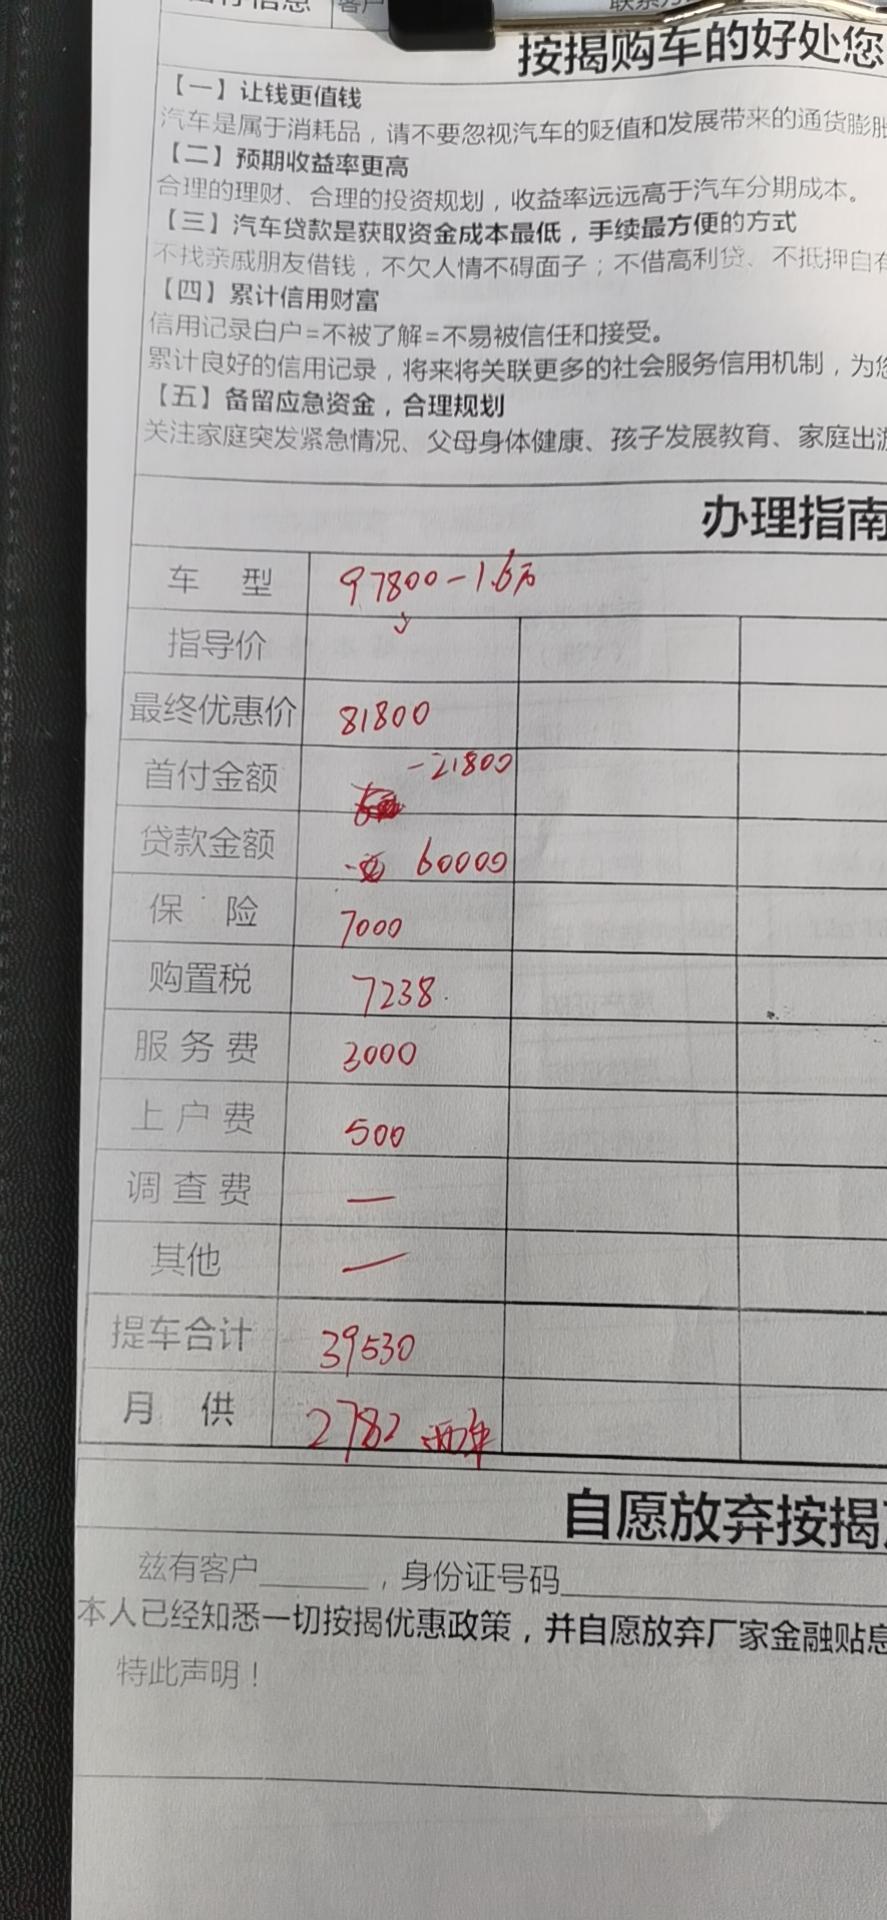 按揭购车的好处您
【一】让钱更值钱
汽车是属于消耗品，请不要忽视汽车的贬值和发展带来的通货膨胀
【二】预期收益率更高
合理的理财、合理的投资规划，收益率远远高于汽车分期成本。
【三】汽车贷款是获取资金成本最低，手续最方便的方式
不找亲戚朋友借钱，不欠人情不碍面子；不借高利贷、不抵押自有
【四】累计信用财富
信用记录白户=不被了解=不易被信任和接受。
累计良好的信用记录，将来将关联更多的社会服务信用机制，为您
【五】备留应急资金，合理规划
关注家庭突发紧急情况、父母身体健康、孩子发展教育、家庭出游
办理指南
车 型 97800-1.6万
指导价
最终优惠价 81800
首付金额 -21800
贷款金额 60000
保 险 7000
购置税 7238
服务费 3000
上户费 500
调查费 —
其他 —
提车合计 39530
月 供 2782 两年
自愿放弃按揭
兹有客户________，身份证号码
本人已经知悉一切按揭优惠政策，并自愿放弃厂家金融贴息
特此声明！